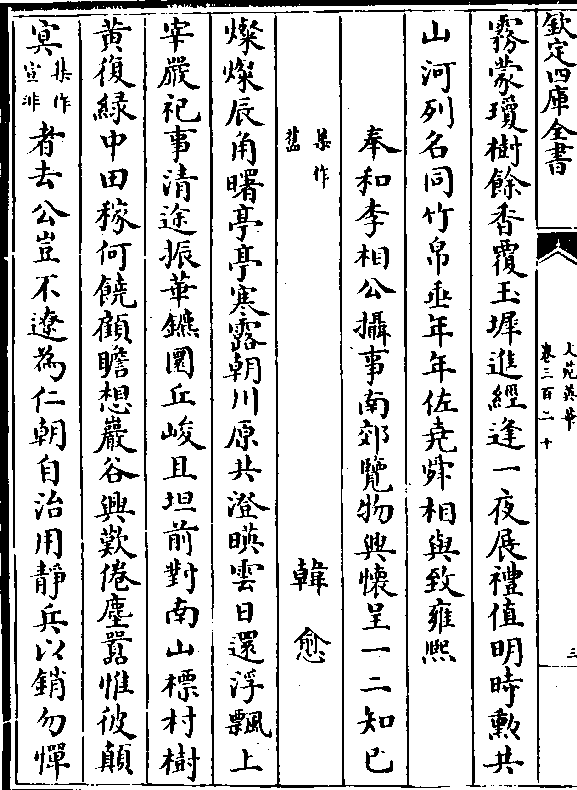 欽定四庫全書
文苑英華
卷三百二十
三
霧蒙瓊樹餘香覆玉墀進經逢一夜展禮值明時勲共
山河列名同竹帛垂年年佐堯舜相與致雍熙
奉和李相公攝事南郊覽物興懐呈一二知己
集作
舊
韓愈
燦燦辰角曙亭亭寒露朝川原共澄暎雲日還浮飄上
宰嚴祀事清途振華鑣圜丘峻且坦前對南山標村樹
黄復緑中田稼何饒顧瞻想巖谷興歎倦塵囂惟彼顛
冥
集作
宣非
者去公豈不遼為仁朝自治用靜兵以銷勿憚